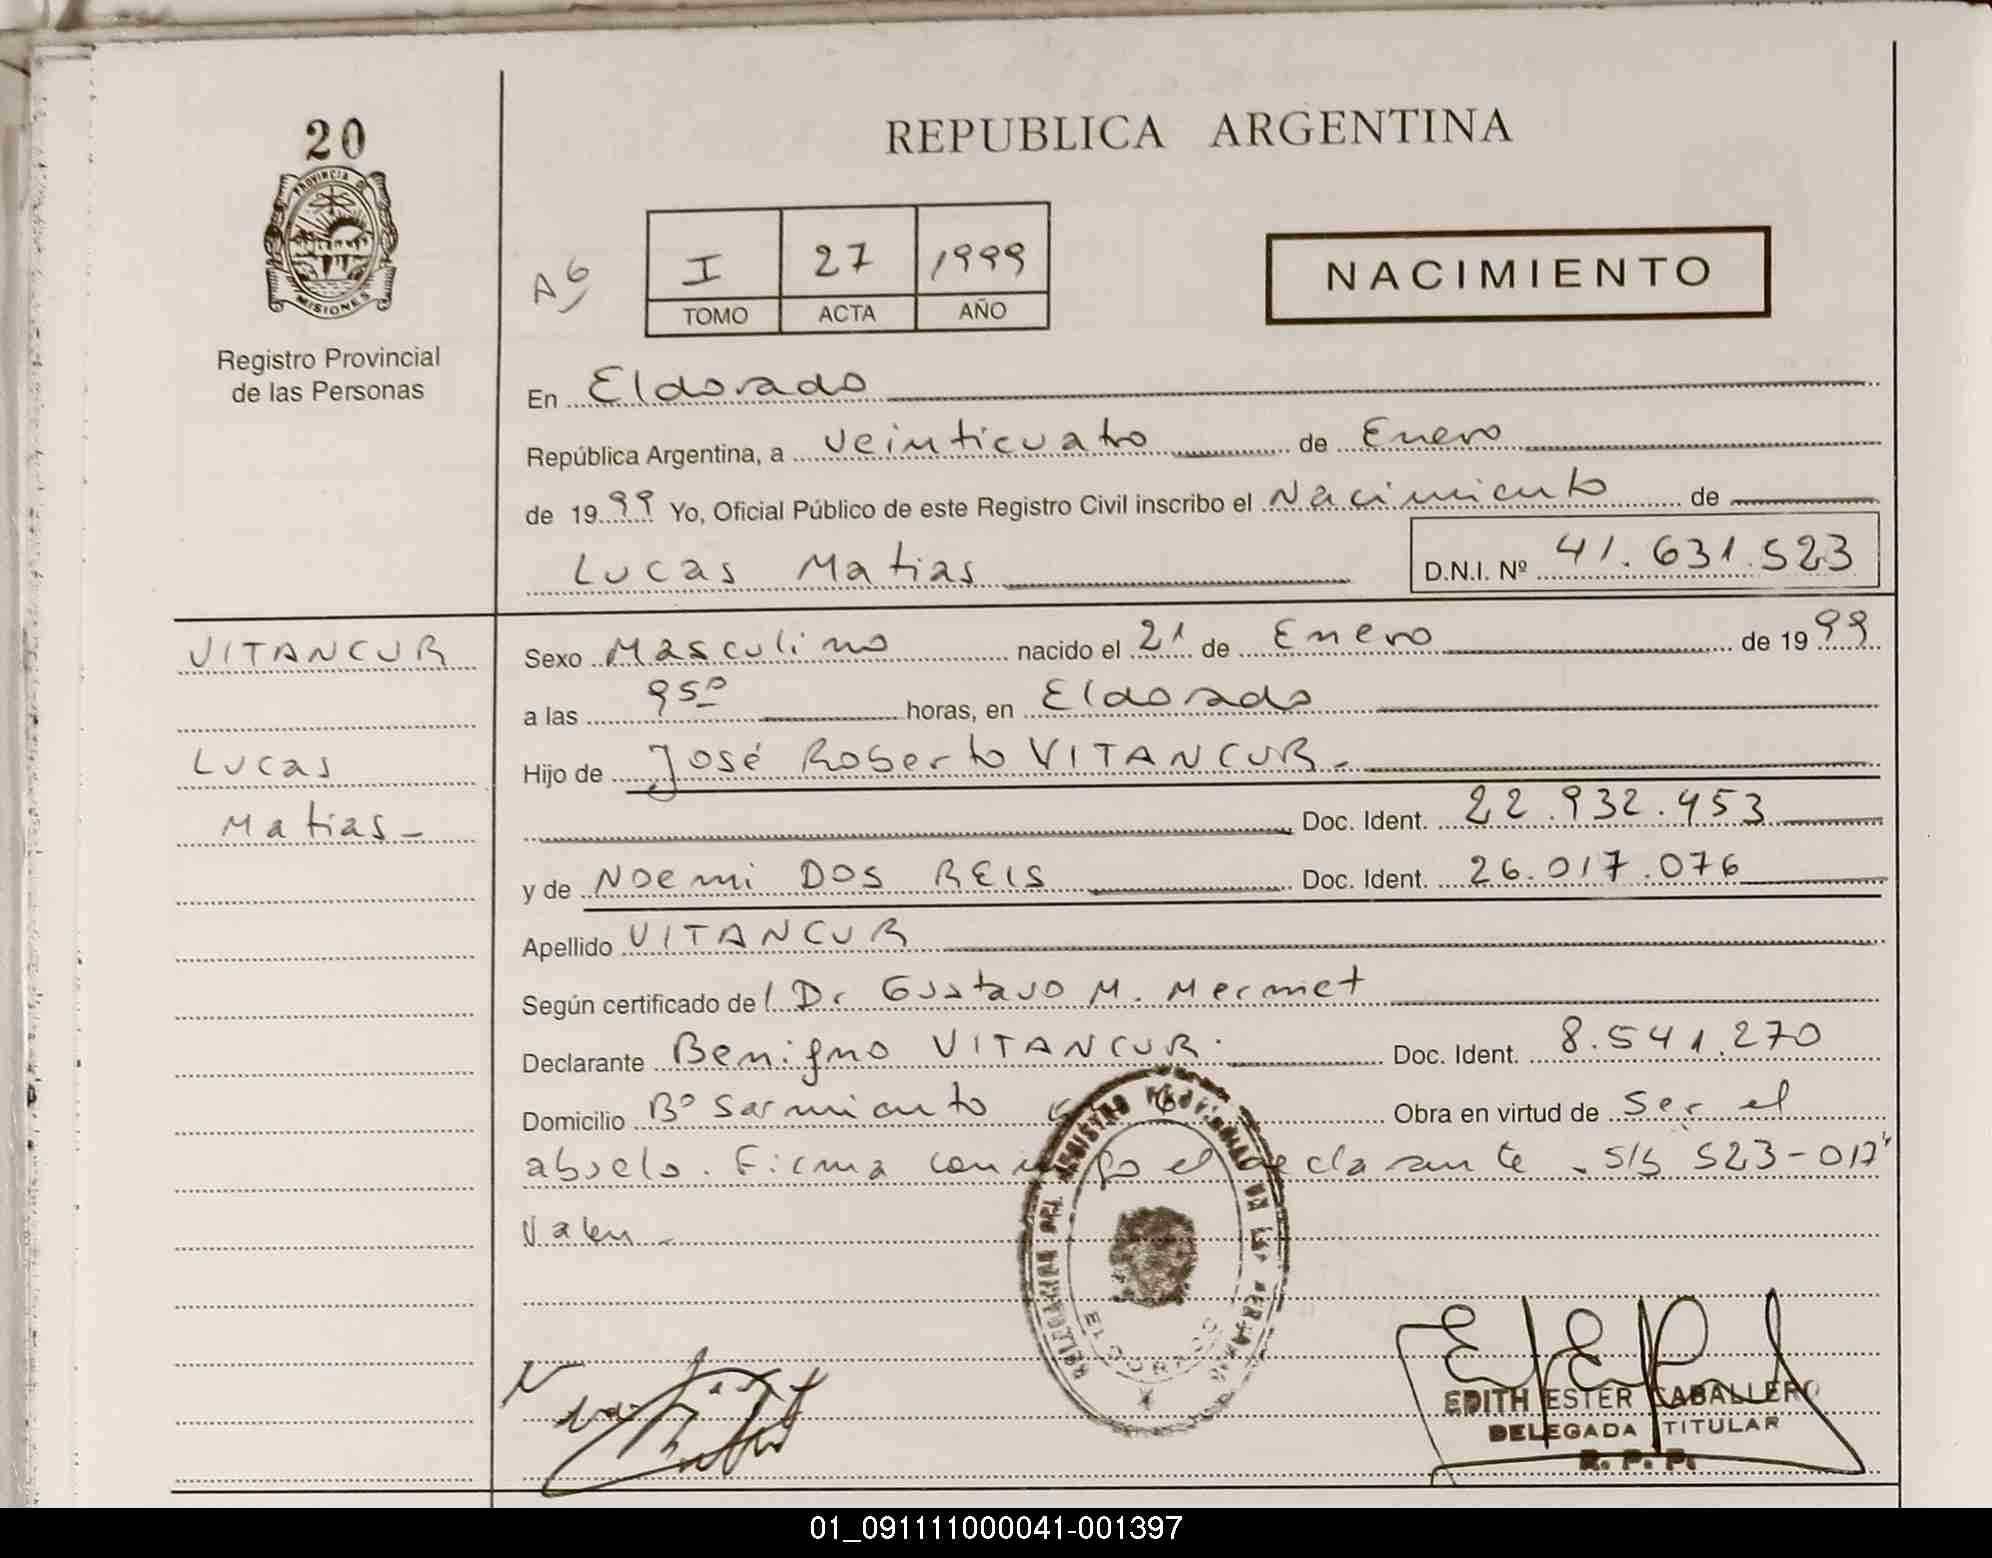 20
PROVINCIA DE
MISIONES
Registro Provincial
de las Personas
REPUBLICA ARGENTINA
A6
I 27 1999
TOMO ACTA AÑO
NACIMIENTO
En Eldorado
República Argentina, a veinticuatro de Enero
de 1999 Yo, Oficial Público de este Registro Civil inscribo el Nacimiento de
Lucas Matias D.N.I. Nº 41.631.523
VITANCUR
Lucas
Matias
Sexo Masculino nacido el 21 de Enero de 1999
a las 950 horas, en Eldorado
Hijo de José Roberto VITANCUR.
Doc. Ident. 22.932.453
y de Noemi DOS REIS Doc. Ident. 26.017.076
Apellido VITANCUR
Según certificado del Dr Gustavo M. Mermet
Declarante Benigno VITANCUR. Doc. Ident. 8.541.270
Domicilio Bº Sarmiento Obra en virtud de Ser el
abuelo. Firma conmigo el declarante. S/S 523-017"
Valen.
DELEGACION DEL REGISTRO PROVINCIAL DE LAS PERSONAS
ELDORADO
EDITH ESTER CABALLERO
DELEGADA TITULAR
R. P. P.
01_091111000041-001397